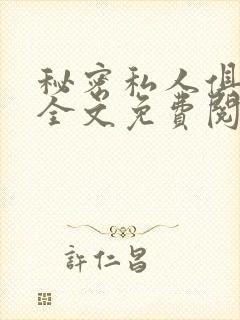 秘密私人俱
全文免費閱
許仁昌